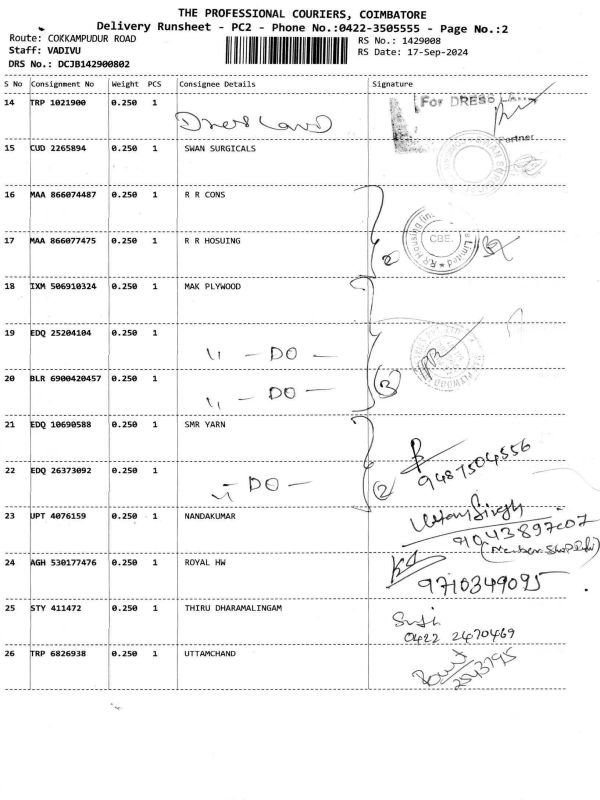 THE PROFESSIONAL COURIERS, COIMBATORE
Delivery Runsheet - PC2 - Phone No.:0422-3505555 - Page No.:2
Route: COKKAMPUDUR ROAD
RS No.: 1429008
Staff: VADIVU
RS Date: 17-Sep-2024
DRS No.: DCJB142900802
S No Consignment No Weight PCS Consignee Details Signature
14 TRP 1021900 0.250 1 Dress Land For DRESS
Partner
15 CUD 2265894 0.250 1 SWAN SURGICALS
16 MAA 866074487 0.250 1 R R CONS
17 MAA 866077475 0.250 1 R R HOSUING CBE. 2
18 IXM 506910324 0.250 1 MAK PLYWOOD
19 EDQ 25204104 0.250 1 " - DO -
20 BLR 6900420457 0.250 1 " - DO - 3
21 EDQ 10690588 0.250 1 SMR YARN 9487504556
22 EDQ 26373092 0.250 1 " DO - 2
23 UPT 4076159 0.250 1 NANDAKUMAR
24 AGH 530177476 0.250 1 ROYAL HW 9710349095
25 STY 411472 0.250 1 THIRU DHARAMALINGAM
0422 2470469
26 TRP 6826938 0.250 1 UTTAMCHAND 2543795